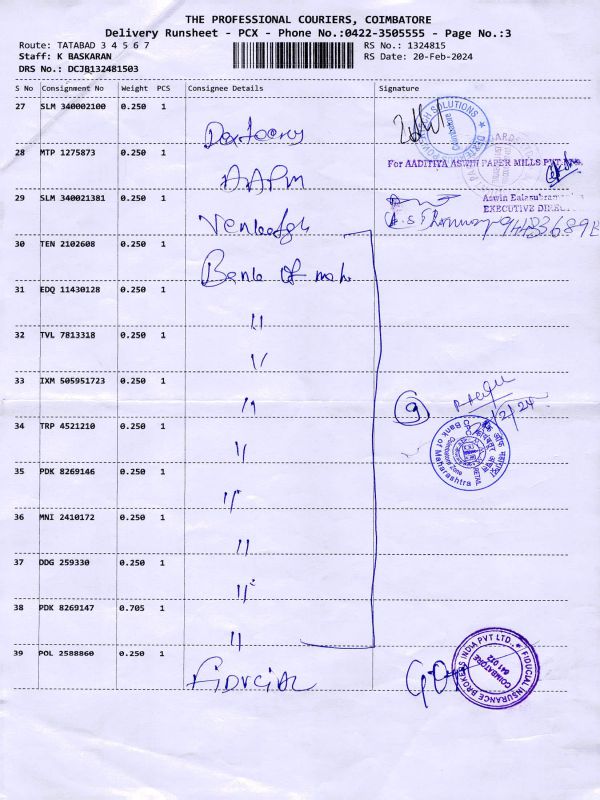 THE PROFESSIONAL COURIERS, COIMBATORE
Delivery Runsheet - PCX - Phone No.:0422-3505555 - Page No.:3
Route: TATABAD 3 4 5 6 7 RS No.: 1324815
Staff: K BASKARAN RS Date: 20-Feb-2024
DRS No.: DCJB132481503
S No Consignment No Weight PCS Consignee Details Signature
27 SLM 340002100 0.250 1
28 MTP 1275873 0.250 1
For AADITIYA ASWIN PAPER MILLS PVT. LTD.
AAPM
29 SLM 340021381 0.250 1
EXECUTIVE DIRECTOR
30 TEN 2102608 0.250 1
Bank of mah
31 EDQ 11430128 0.250 1
"
32 TVL 7813318 0.250 1
"
33 IXM 505951723 0.250 1
" 9
34 TRP 4521210 0.250 1
"
Bank of Maharashtra
Coimbatore Zone
35 PDK 8269146 0.250 1
"
36 MNI 2410172 0.250 1
"
37 DDG 259330 0.250 1
"
38 PDK 8269147 0.705 1
"
39 POL 2588860 0.250 1
FIDUCIAL
FIDUCIAL INSURANCE BROKERS INDIA PVT LTD.
COIMBATORE
641 012